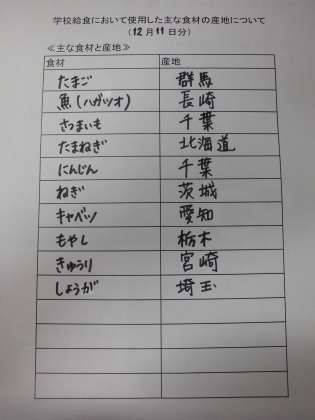 学校給食において使用した主な食材の産地について
(12月11日分)
≪主な食材と産地≫
食材 産地
たまご 群馬
魚(ハガツオ) 長崎
さつまいも 千葉
たまねぎ 北海道
にんじん 千葉
ねぎ 茨城
キャベツ 愛知
もやし 栃木
きゅうり 宮崎
しょうが 埼玉